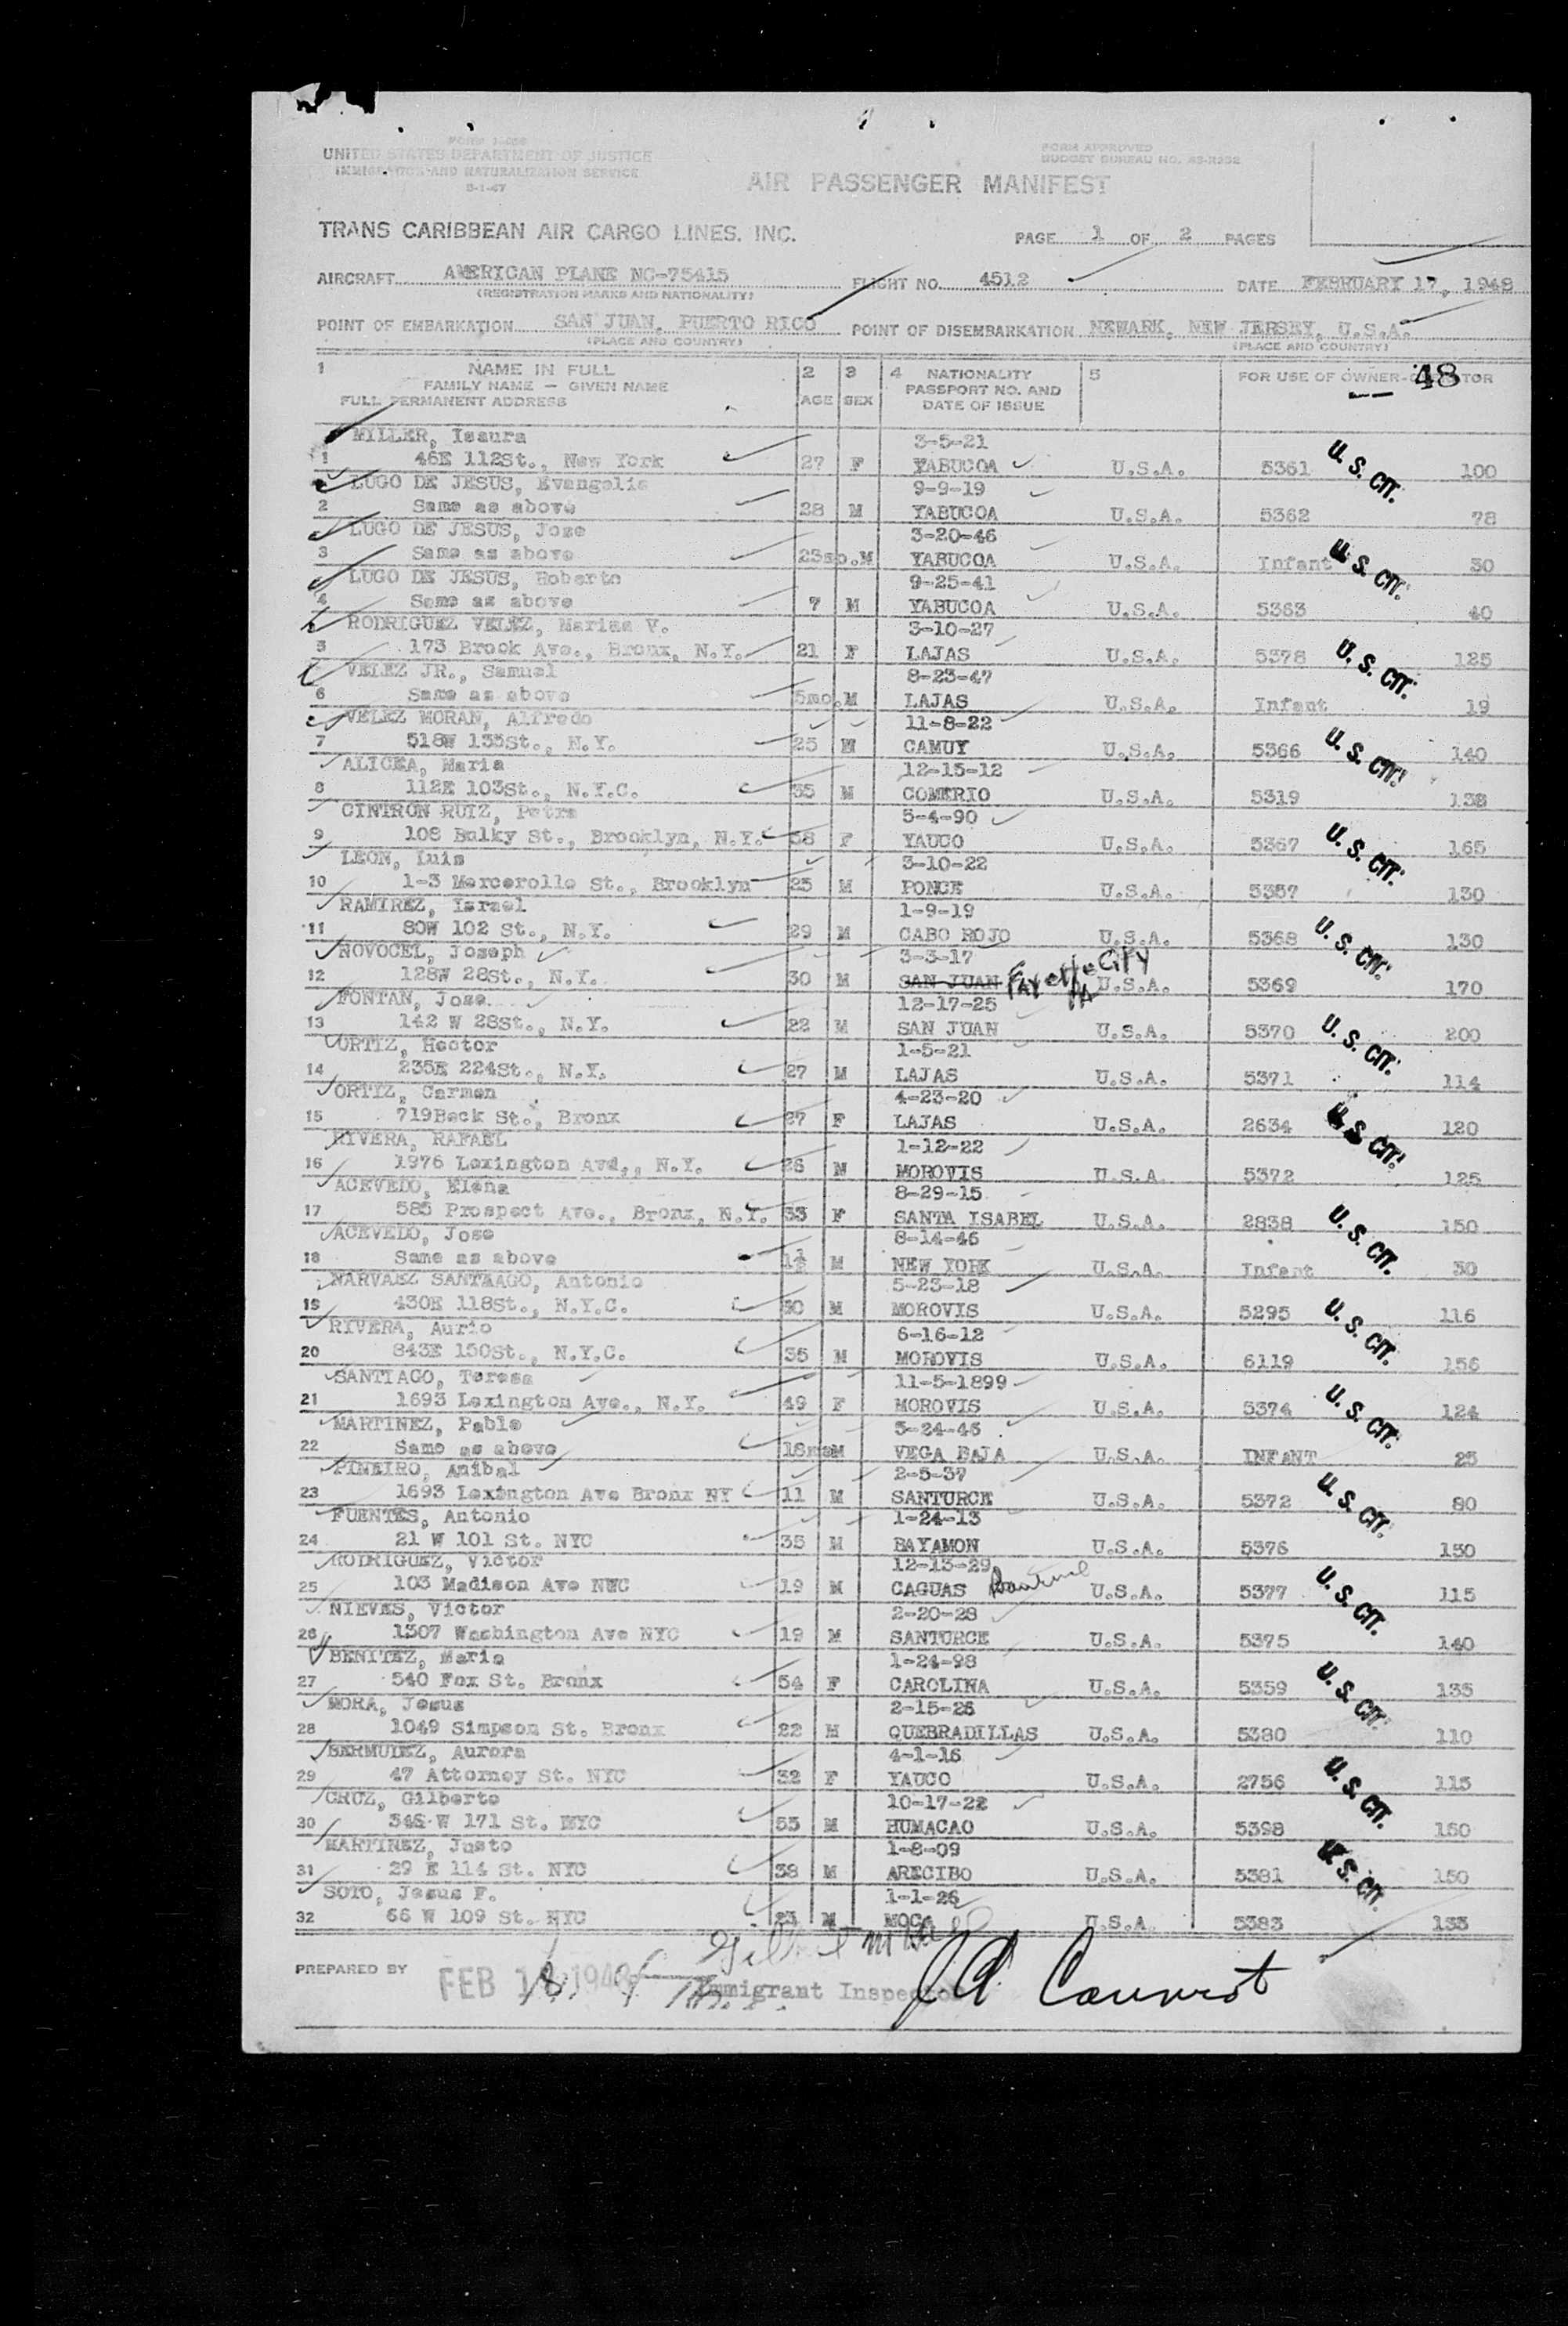 FORM I-466
UNITED STATES DEPARTMENT OF JUSTICE
IMMIGRATION AND NATURALIZATION SERVICE
FORM APPROVED
BUDGET BUREAU NO.
AIR PASSENGER MANIFEST
TRANS CARIBBEAN AIR CARGO LINES, INC.
PAGE 1 OF 2 PAGES
AIRCRAFT AMERICAN PLANE NC-75415 FLIGHT NO. 4512 DATE FEBRUARY 17, 1948
(REGISTRATION MARKS AND NATIONALITY)
POINT OF EMBARKATION SAN JUAN, PUERTO RICO POINT OF DISEMBARKATION NEWARK, NEW JERSEY, U.S.A.
(PLACE AND COUNTRY) (PLACE AND COUNTRY)
1 NAME IN FULL 2 3 4 NATIONALITY 5 FOR USE OF OWNER-OPERATOR 48
FAMILY NAME — GIVEN NAME PASSPORT NO. AND
FULL PERMANENT ADDRESS AGE SEX DATE OF ISSUE
MILLER, Isaura 3-5-21
1 46E 112St., New York 27 F YABUCOA U.S.A. 5361 U. S. CIT. 100
LUGO DE JESUS, Evangelis 9-9-19
2 Same as above 28 M YABUCOA U.S.A. 5362 78
LUGO DE JESUS, Jose 3-20-46
3 Same as above 23mo. M YABUCOA U.S.A. Infant U. S. CIT. 30
LUGO DE JESUS, Roberto 9-25-41
4 Same as above 7 M YABUCOA U.S.A. 5363 40
RODRIGUEZ VELEZ, Marias V. 3-10-27
5 173 Brook Ave., Bronx, N.Y. 21 F LAJAS U.S.A. 5378 U. S. CIT. 125
VELEZ JR., Samuel 8-23-47
6 Same as above 5mo. M LAJAS U.S.A. Infant 19
VELEZ MORAN, Alfredo 11-8-22
7 518W 135St., N.Y. 25 M CAMUY U.S.A. 5366 U. S. CIT. 140
ALICEA, Maria 12-15-12
8 112E 103St., N.Y.C. 35 M COMERIO U.S.A. 5319 138
CINTRON RUIZ, Petra 5-4-90
9 108 Bulky St., Brooklyn, N.Y. 58 F YAUCO U.S.A. 5367 U. S. CIT. 165
LEON, Luis 3-10-22
10 1-3 Mercerolle St., Brooklyn 25 M PONCE U.S.A. 5357 130
RAMIREZ, Israel 1-9-19
11 80W 102 St., N.Y. 29 M CABO ROJO U.S.A. 5368 U. S. CIT. 130
NOVOCEL, Joseph 3-3-17
12 128W 28St., N.Y. 30 M SAN JUAN Fayette City PA U.S.A. 5369 170
FONTAN, Jose. 12-17-25
13 142 W 28St., N.Y. 22 M SAN JUAN U.S.A. 5370 U. S. CIT. 200
ORTIZ, Hector 1-5-21
14 235E 224St., N.Y. 27 M LAJAS U.S.A. 5371 114
ORTIZ, Carmen 4-23-20
15 719Beck St., Bronx 27 F LAJAS U.S.A. 2634 U. S. CIT. 120
RIVERA, RAFAEL 1-12-22
16 1976 Lexington Avd,, N.Y. 26 M MOROVIS U.S.A. 5372 125
ACEVEDO, Elena 8-29-15
17 585 Prospect Ave., Bronx, N.Y. 33 F SANTA ISABEL U.S.A. 2838 U. S. CIT. 150
ACEVEDO, Jose 8-14-46
18 Same as above 1½ M NEW YORK U.S.A. Infant 30
NARVAEZ SANTAAGO, Antonio 5-23-18
19 430E 118St., N.Y.C. 30 M MOROVIS U.S.A. 5295 U. S. CIT. 116
RIVERA, Aurio 6-16-12
20 843E 150St., N.Y.C. 35 M MOROVIS U.S.A. 6119 156
SANTIAGO, Teresa 11-5-1899
21 1693 Lexington Ave., N.Y. 49 F MOROVIS U.S.A. 5374 U. S. CIT. 124
MARTINEZ, Pablo 5-24-46
22 Same as above 18mo M VEGA BAJA U.S.A. INFANT 25
PINEIRO, Anibal 2-5-37
23 1693 Lexington Ave Bronx NY 11 M SANTURCE U.S.A. 5372 U. S. CIT. 80
FUENTES, Antonio 1-24-13
24 21 W 101 St. NYC 35 M BAYAMON U.S.A. 5376 130
RODRIGUEZ, Victor 12-13-29
25 103 Madison Ave NWC 19 M CAGUAS U.S.A. 5377 U. S. CIT. 115
NIEVES, Victor 2-20-28
26 1307 Washington Ave NYC 19 M SANTURCE U.S.A. 5375 140
BENITEZ, Maria 1-24-98
27 540 Fox St. Bronx 54 F CAROLINA U.S.A. 5359 U. S. CIT. 135
MORA, Jesus 2-15-26
28 1049 Simpson St. Bronx 22 M QUEBRADILLAS U.S.A. 5380 110
BERMUDEZ, Aurora 4-1-16
29 47 Attorney St. NYC 32 F YAUCO U.S.A. 2756 U. S. CIT. 115
CRUZ, Gilberto 10-17-22
30 546 W 171 St. NYC 53 M HUMACAO U.S.A. 5398 150
MARTINEZ, Justo 1-8-09
31 29 E 114 St. NYC 38 M ARECIBO U.S.A. 5381 U. S. CIT. 150
SOTO, Jesus F. 1-1-26
32 66 W 109 St. NYC 23 M MOCA U.S.A 5383 133
PREPARED BY FEB 18 1948 Immigrant Inspector